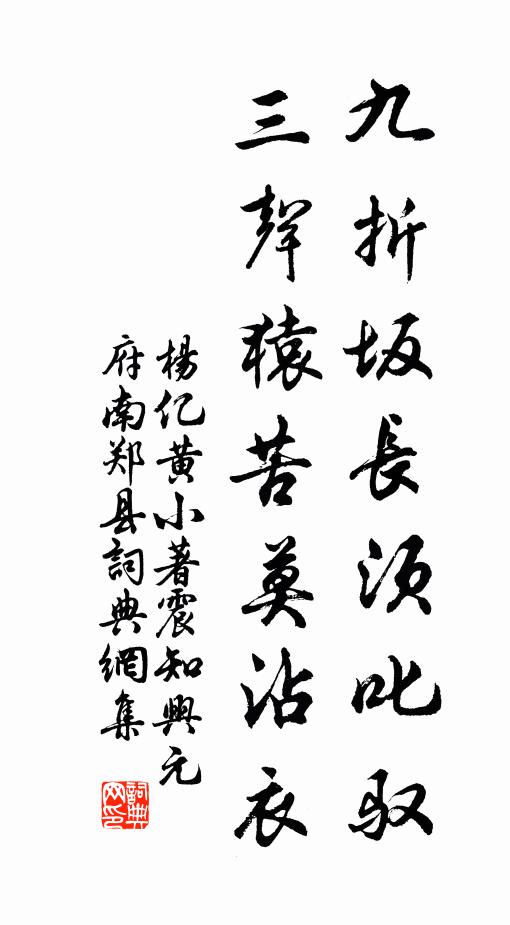 九折坂長須叱馭
三聲猿苦莫沾衣
楊亿黄小著震知興元
府南郑县詞典網集
詞典网印